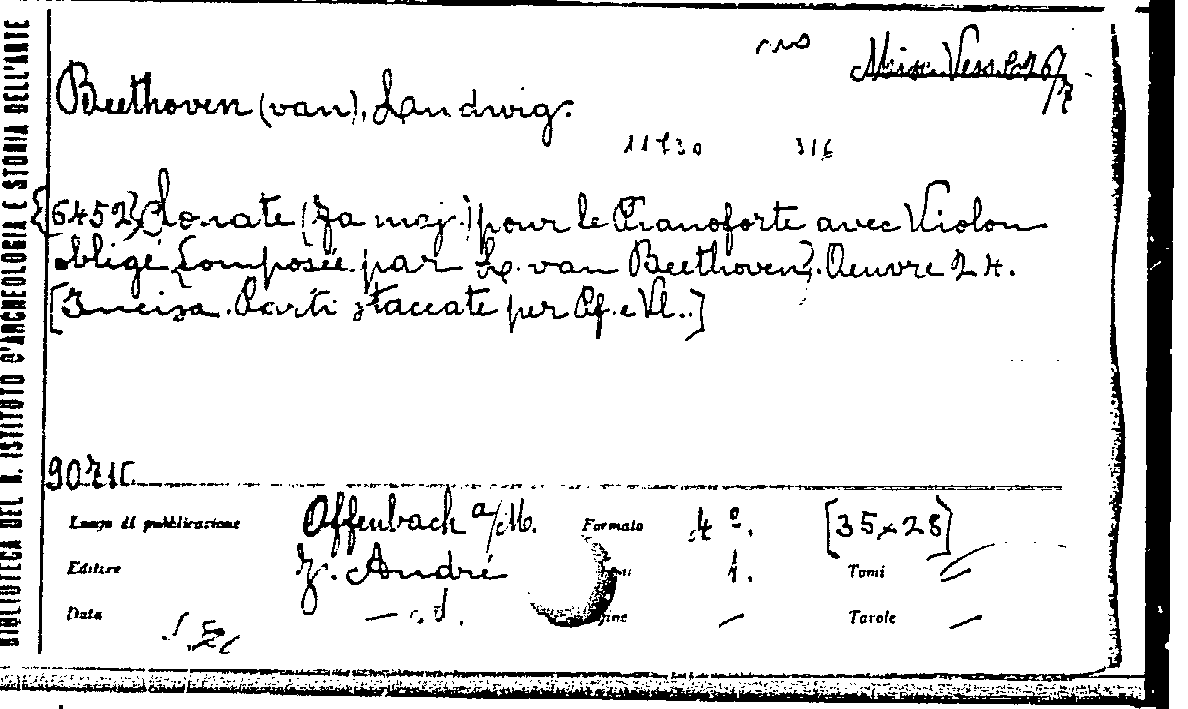 BIBLIOTECA DEL R. ISTITUTO D'ARCHEOLOGIA E STORIA DELL'ARTE
Misc. Vess. C 26/7
Beethoven (van), Landwig.
11730 316
{6452} Sonate (Fa maj.) pour le Pianoforte avec Violon
obligé [Composée par L. van Beethoven]. Oeuvre 24.
[Incisa. Parti staccate per Pf. e Vl..]
90710
Luogo di pubblicazione Offenbach a/M. Formato 4º. [35×28]
Editore J. André 1. Tomi
Data — s.d. — Tavole —